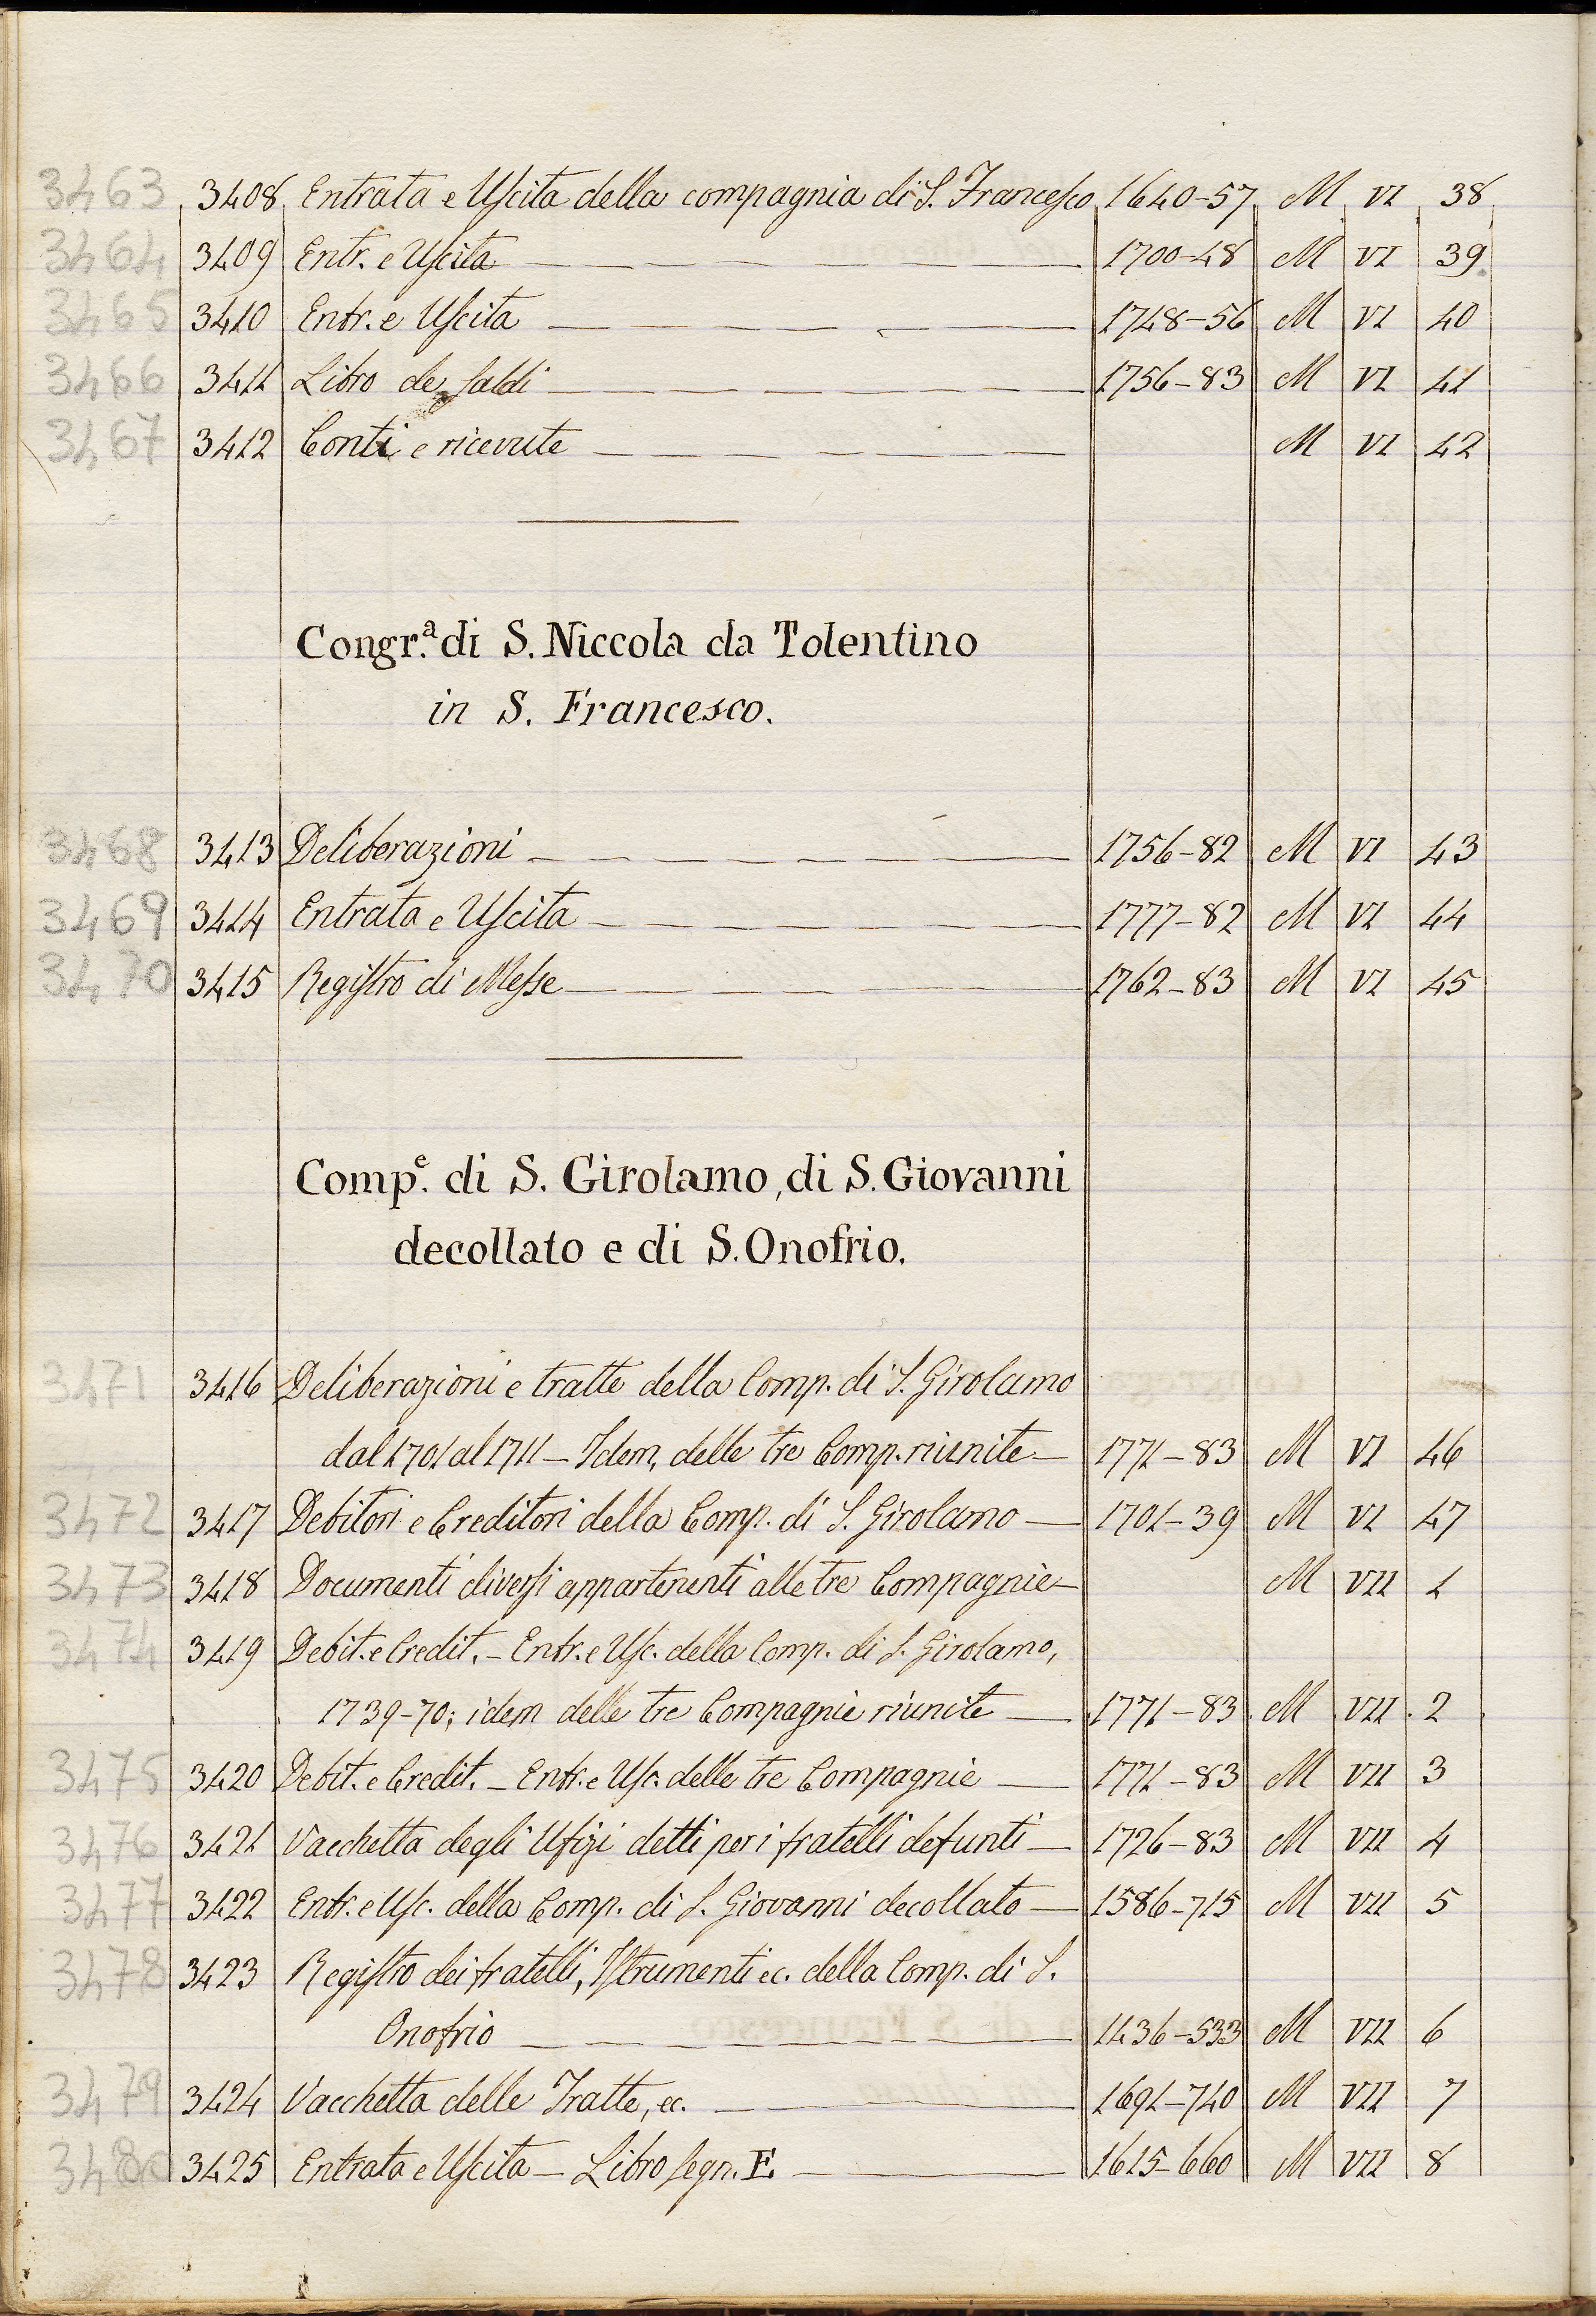 3463 3408 Entrata e Uscita della compagnia di S. Francesco 1640-57 M VI 38
3464 3409 Entr. e Uscita 1700-48 M VI 39
3465 3410 Entr. e Uscita 1748-56 M VI 40
3466 3411 Libro de saldi 1756-83 M VI 41
3467 3412 Conti e ricevute M VI 42
Congr.a di S. Niccola da Tolentino
in S. Francesco.
3468 3413 Deliberazioni 1756-82 M VI 43
3469 3414 Entrata e Uscita 1777-82 M VI 44
3470 3415 Registro di Messe 1762-83 M VI 45
Comp.e di S. Girolamo, di S. Giovanni
decollato e di S. Onofrio.
3471 3416 Deliberazioni e tratte della Comp. di S. Girolamo
dal 1701 al 1711 - Idem, delle tre Comp. riunite - 1771-83 M VI 46
3472 3417 Debitori e Creditori della Comp. di S. Girolamo - 1701-39 M VI 47
3473 3418 Documenti diversi appartenenti alle tre Compagnie - M VII 1
3474 3419 Debit. e Credit. - Entr. e Usc. della Comp. di S. Girolamo,
1739-70; idem delle tre Compagnie riunite - 1771-83 M VII 2
3475 3420 Debit. e Credit. - Entr. e Usc. delle tre Compagnie - 1771-83 M VII 3
3476 3421 Vacchetta degli Ufizi detti per i fratelli defunti - 1726-83 M VII 4
3477 3422 Entr. e Usc. della Comp. di S. Giovanni decollato - 1586-715 M VII 5
3478 3423 Registro dei fratelli, Istrumenti ec. della Comp. di S.
Onofrio 1436-533 M VII 6
3479 3424 Vacchetta delle Tratte, ec. 1691-740 M VII 7
3480 3425 Entrata e Uscita - Libro segn. E. 1615-660 M VII 8